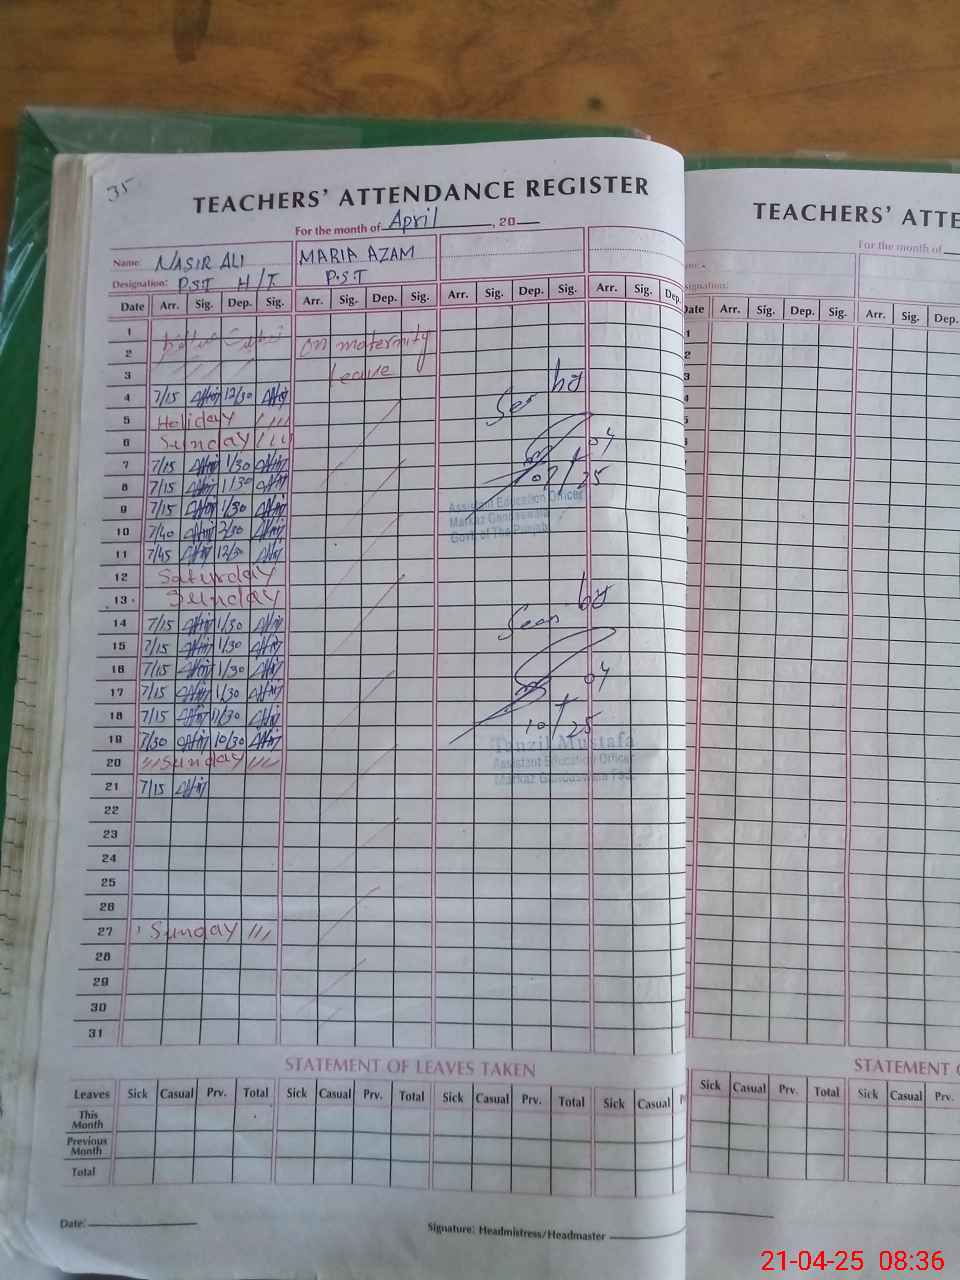 35
TEACHERS' ATTENDANCE REGISTER
For the month of April, 20
Name: NASIR ALI MARIA AZAM
Designation: P.S.T H/T P.S.T
Date Arr. Sig. Dep. Sig. Arr. Sig. Dep. Sig. Arr. Sig. Dep. Sig. Arr. Sig. Dep.
1
2 On maternity
3 Leave
4 7/15 12/30
5 Holiday
6 Sunday
7 7/15 1/30
8 7/15 1/30
9 7/15 1/30
10 7/40
11 7/45 12/30
12 Saturday
13 Sunday
14 7/15 1/30
15 7/15 1/30
16 7/15 1/30
17 7/15 1/30
18 7/15 11/30
19 7/30 10/30
20 Sunday
21 7/15
22
23
24
25
26
27 Sunday
28
29
30
31
Seen by
04
25
Assistant Education Officer
Markaz
Govt. of The Punjab
Seen by
04
10 25
Tanzil Mustafa
Assistant Education Officer
Markaz
STATEMENT OF LEAVES TAKEN
Leaves Sick Casual Prv. Total Sick Casual Prv. Total Sick Casual Prv. Total Sick Casual
This Month
Previous Month
Total
Date:
Signature: Headmistress/Headmaster
TEACHERS' ATTE
For the month of
Date Arr. Sig. Dep. Sig. Arr. Sig. Dep.
STATEMENT
Sick Casual Prv. Total Sick Casual Prv.
21-04-25 08:36